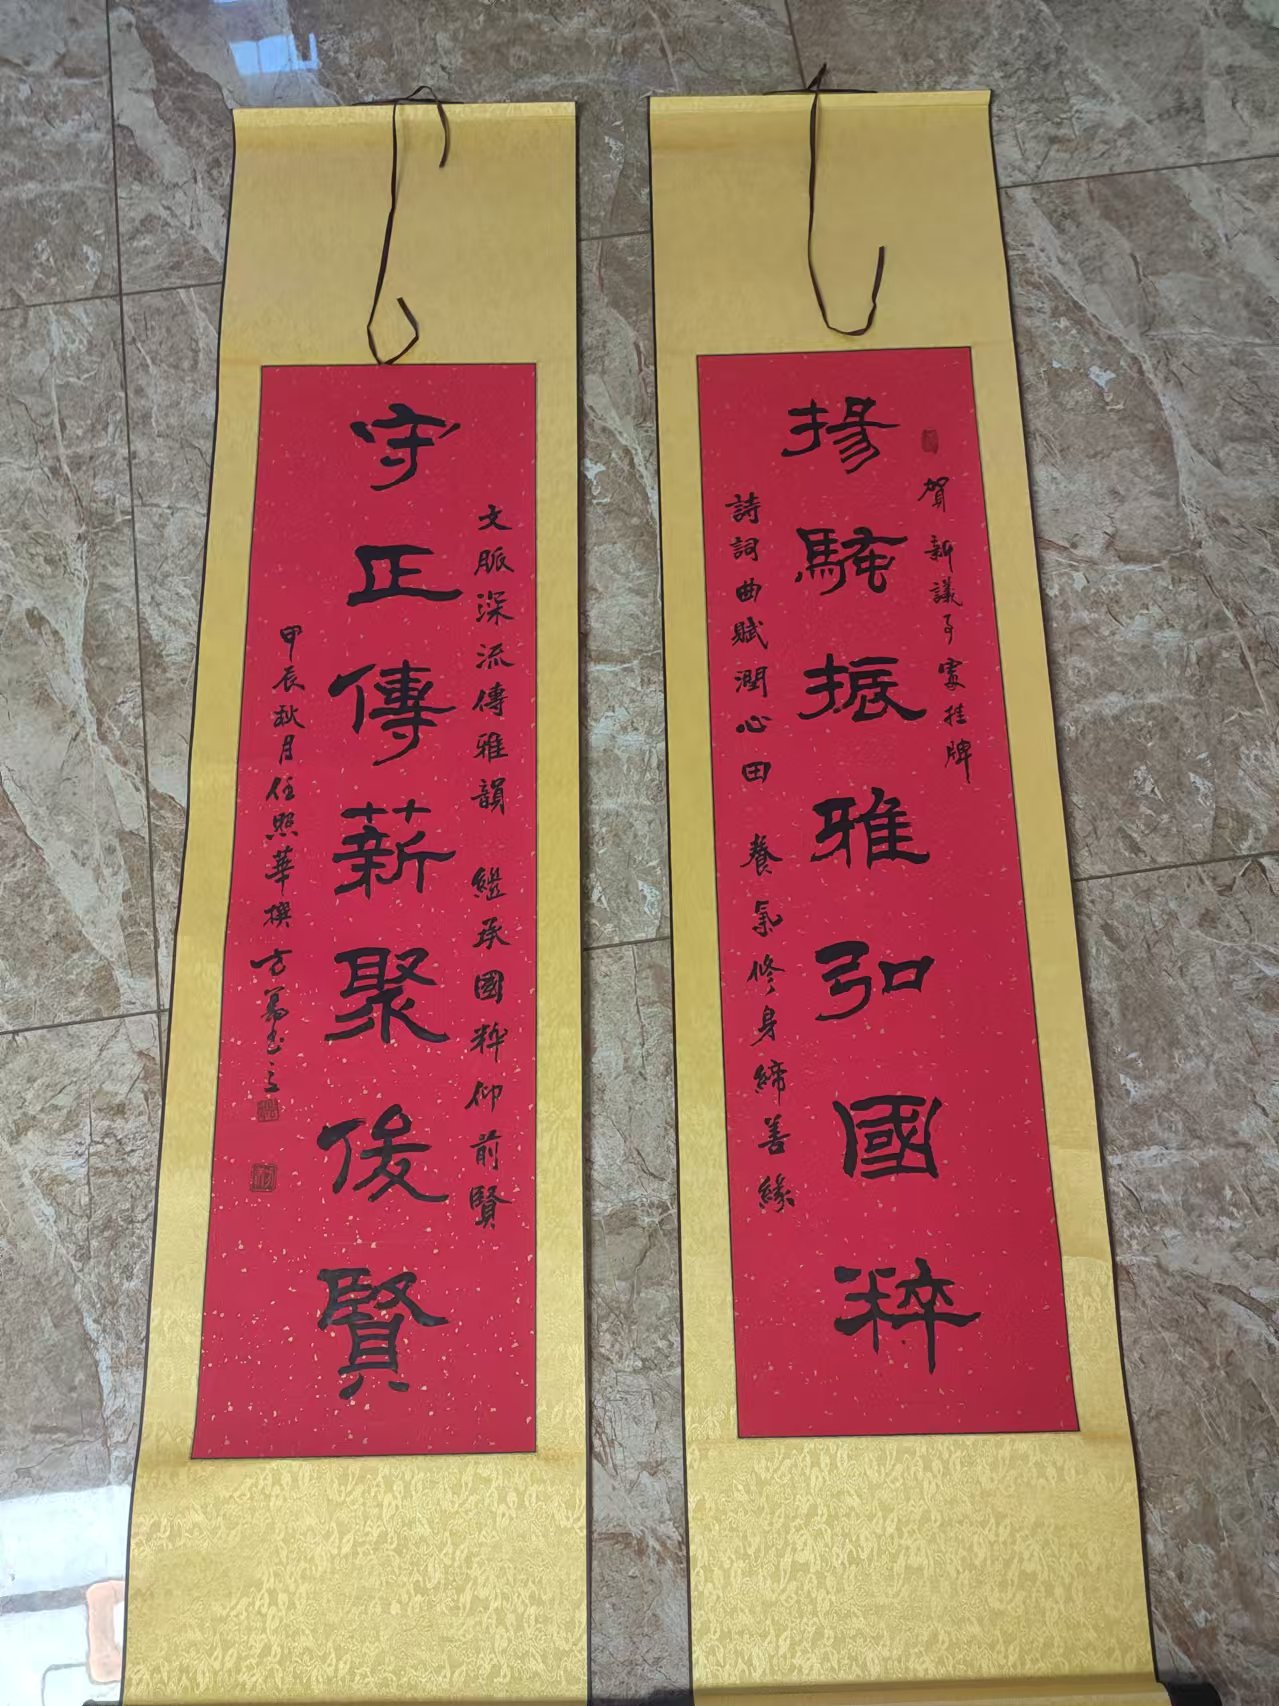 賀新議事處挂牌
揚騷振雅弘國粹
詩詞曲賦潤心田 養氣修身締善緣
文脈深流傳雅韻 繼承國粹仰前賢
守正傳薪聚後賢
甲辰秋月任照華撰 方